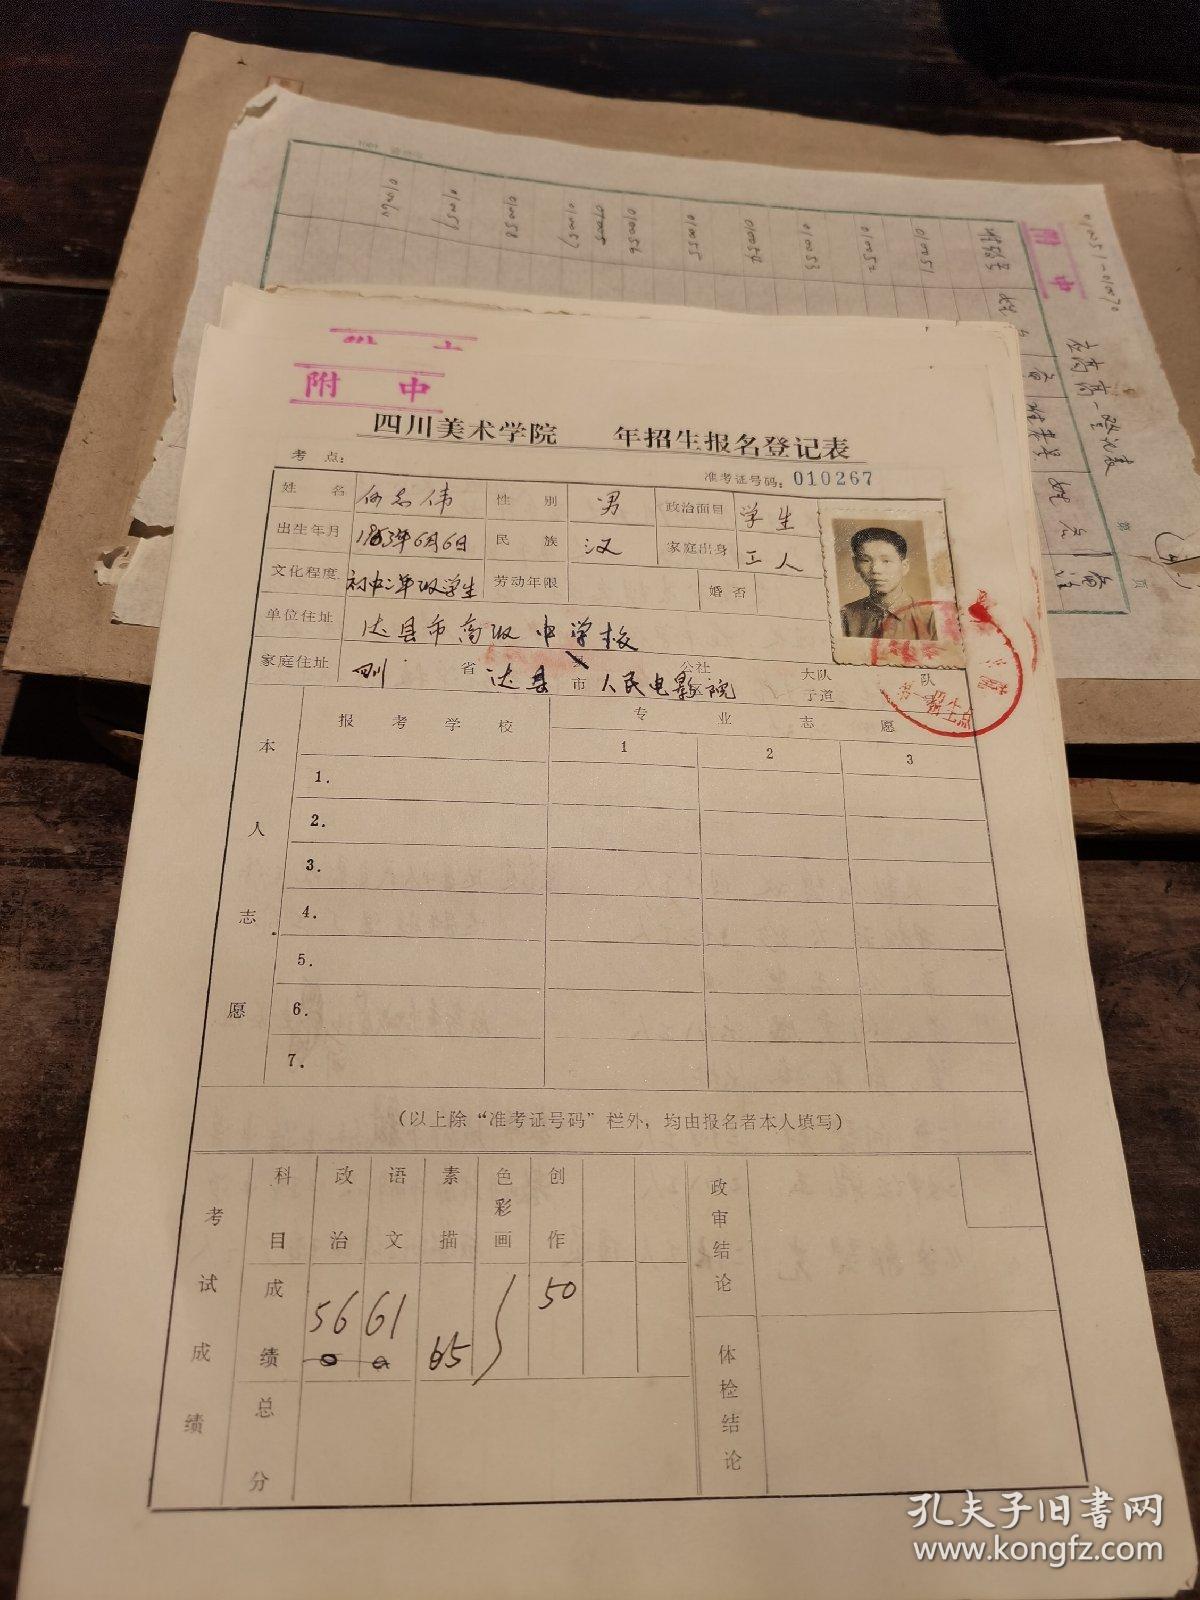 附 中
四川美术学院 年招生报名登记表
考 点： 准考证号码：010267
姓 名 何志伟 性 别 男 政治面目 学生
出生年月 1963年6月6日 民 族 汉 家庭出身 工人
文化程度 初中二年级学生 劳动年限 婚 否
单位住址 达县市高级中学校
家庭住址 四川 省 达县 县市 人民电影院 公社 大队 子道 队
本人志愿 报 考 学 校 专 业 志 愿
1 2 3
1.
2.
3.
4.
5.
6.
7.
(以上除“准考证号码”栏外，均由报名者本人填写)
考试成绩 科目 政治 语文 素描 色彩画 创作 政审结论
成绩 56 61 65 50
总分 体检结论
附 中
010051-010070
准考号 姓名 备 准考号 姓名 备注
第 页
010051
010052
010053
010054
010055
010056
010057
010058
010059
010060
孔夫子旧书网
www.kongfz.com